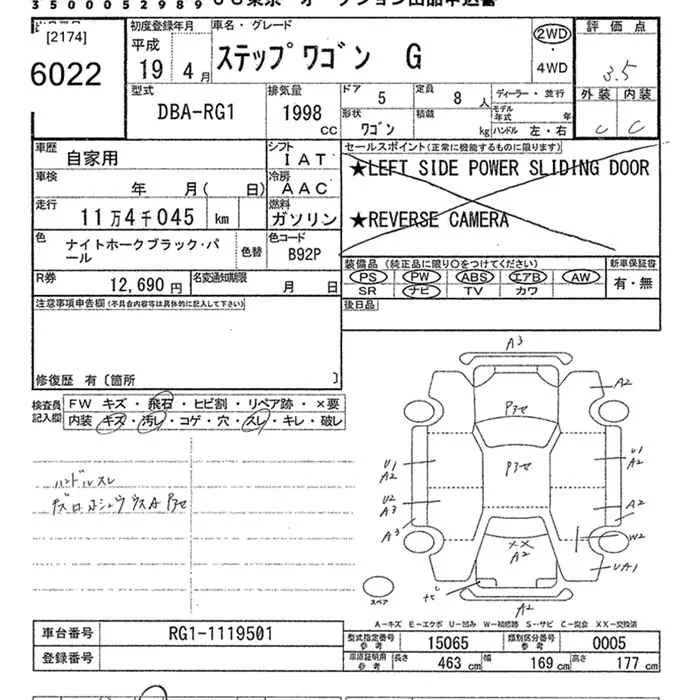 35000052989
[2174]
6022
初度登録年月
平成
19 4月
車名・グレード
ステップワゴン G
2WD
4WD
評価点
3.5
型式
DBA-RG1
排気量
1998
CC
ドア
5
定員
8 人
ディーラー・並行
モデル年式 年
形状
ワゴン
積載
kg
ハンドル 左・右
外装 内装
C C
車歴
自家用
シフト
IAT
車検
年 月( 日)
冷房
AAC
走行
11万4千045 km
燃料
ガソリン
色
ナイトホークブラック・パール
色替
色コード
B92P
セールスポイント(正常に機能するものに限ります)
★LEFT SIDE POWER SLIDING DOOR
★REVERSE CAMERA
R券
12,690円
名変通知期限
月 日
装備品(純正品に限り○をつけてください)
PS PW ABS エアB AW
SR ナビ TV カワ
新車保証書
有・無
注意事項申告欄(不具合内容等は具体的に記入して下さい)
後日品
修復歴 有〔箇所 〕
検査員記入欄
FW キズ・飛石・ヒビ割・リペア跡・×要
内装 キズ・汚レ・コゲ・穴・スレ・キレ・破レ
ハンドルスレ
A3
A2
Pアセ
U1
A2
Pアセ
U1
A2
U2
A3
A2
A3
XX
A2
W2
UA1
ナビ
A2
スペア
A-キズ E-エクボ U-凹み W-補修跡 S-サビ C-腐食 XX-交換済
車台番号
RG1-1119501
登録番号
型式指定番号 参考
15065
類別区分番号 参考
0005
車庫証明用 参考
長さ
463 cm
幅
169 cm
高さ
177 cm